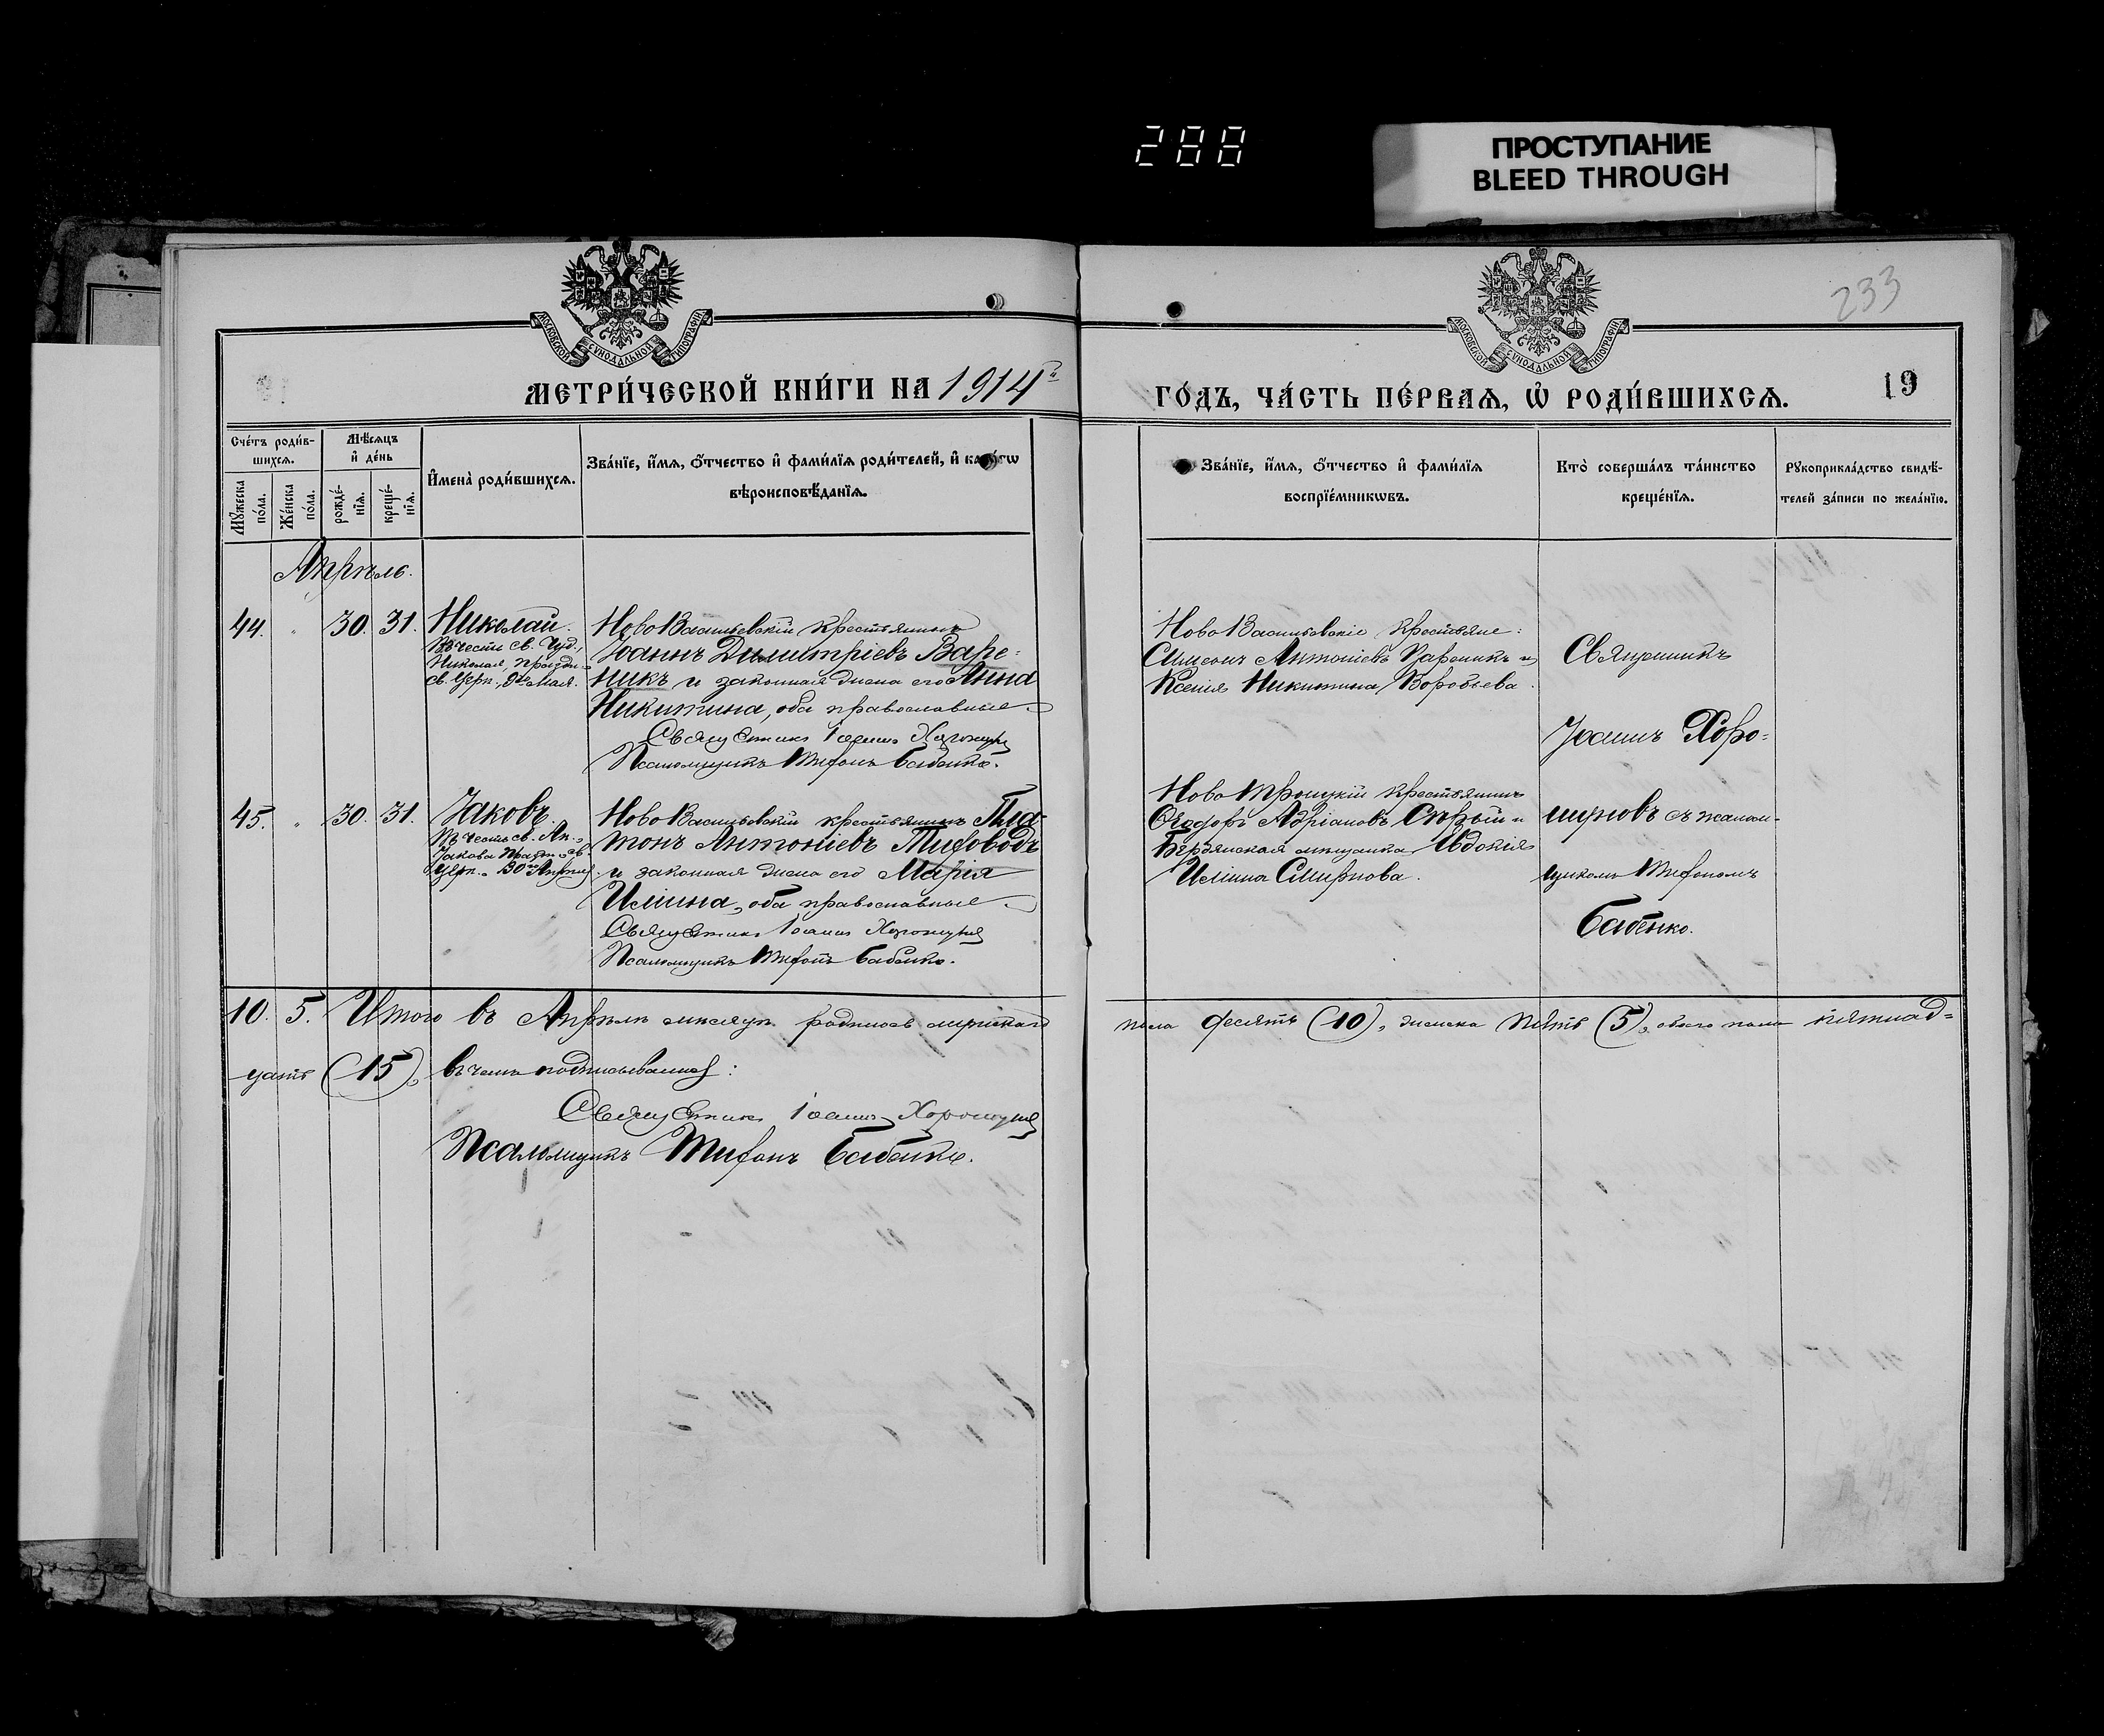 288
ПРОСТУПАНИЕ
BLEED THROUGH
233
МОСКОВСКОЙ СѴНОДАЛЬНОЙ ТИПОГРАФІИ
МОСКОВСКОЙ СѴНОДАЛЬНОЙ ТИПОГРАФІИ
МЕТРИ́ЧЕСКОЙ КНИ́ГИ НА 1914й
ГО́ДЪ, ЧА́СТЬ ПЕ́РВАЯ, Ѡ҆ РОДИ́ВШИХСЯ.
19
Сче́тъ роди́в-
шихся.
Мѣ́сяцъ
и҆ де́нь
Мꙋ́жеска по́ла.
Же́нска по́ла.
рожде́-нїя.
креще́-нїя.
И҆мена̀ роди́вшихся.
Зва́нїе, и҆́мя, ѻ҆́тчество и҆ фами́лїя роди́телей, и҆ како́гѡ
вѣроисповѣ́данїя.
Зва́нїе, и҆́мя, ѻ҆́тчество и҆ фами́лїя
воспрїе́мникѡвъ.
Кто̀ соверша́лъ та́инство
креще́нїя.
Рꙋкоприкла́дство свидѣ́-
телей за́писи по жела́нїю.
Апрѣль.
44. " 30. 31. Николай.
Въ честь св. Чуд.,
Николая, праздн.
св. Церк., 9го Мая.
НовоВасильевскій крестьянинъ
Іоаннъ Димитріевъ Варе-
никъ и законная жена его Анна
Никитина, оба православные
Священникъ Іоаннъ
Псаломщикъ Тифонъ Бабенко.
НовоВасильевскіе крестьяне:
Симеонъ Антоніевъ Вареникъ и
Ксенія Никитина Воробьева.
Священникъ
Іоаннъ Хоро-
45. " 30. 31. Іаковъ.
Въ честь св. Ап.
Іакова праздн. св
Церк. 30го Апрѣля.
НовоВасильевскій крестьянинъ Пла-
тонъ Антоніевъ Тифоводъ
и законная жена его Марія
Иліина, оба православные
Священникъ Іоаннъ
Псаломщикъ Тифонъ Бабенко.
НовоТроицкій крестьянинъ
Ѳеодоръ Адріановъ Сѣрый и
Бердянская мѣщанка Евдокія
Иліина Смирнова.
съ псалом-
щикомъ Тифономъ
Бабенко.
10. 5. Итого въ Апрѣлѣ мѣсяцѣ родилось мужскаго
пола десять (10), женска пять (5), обоего пола пятнад-
цать (15), въ чемъ подписываемся:
Священникъ Іоаннъ
Псаломщикъ Тифонъ Бабенко.